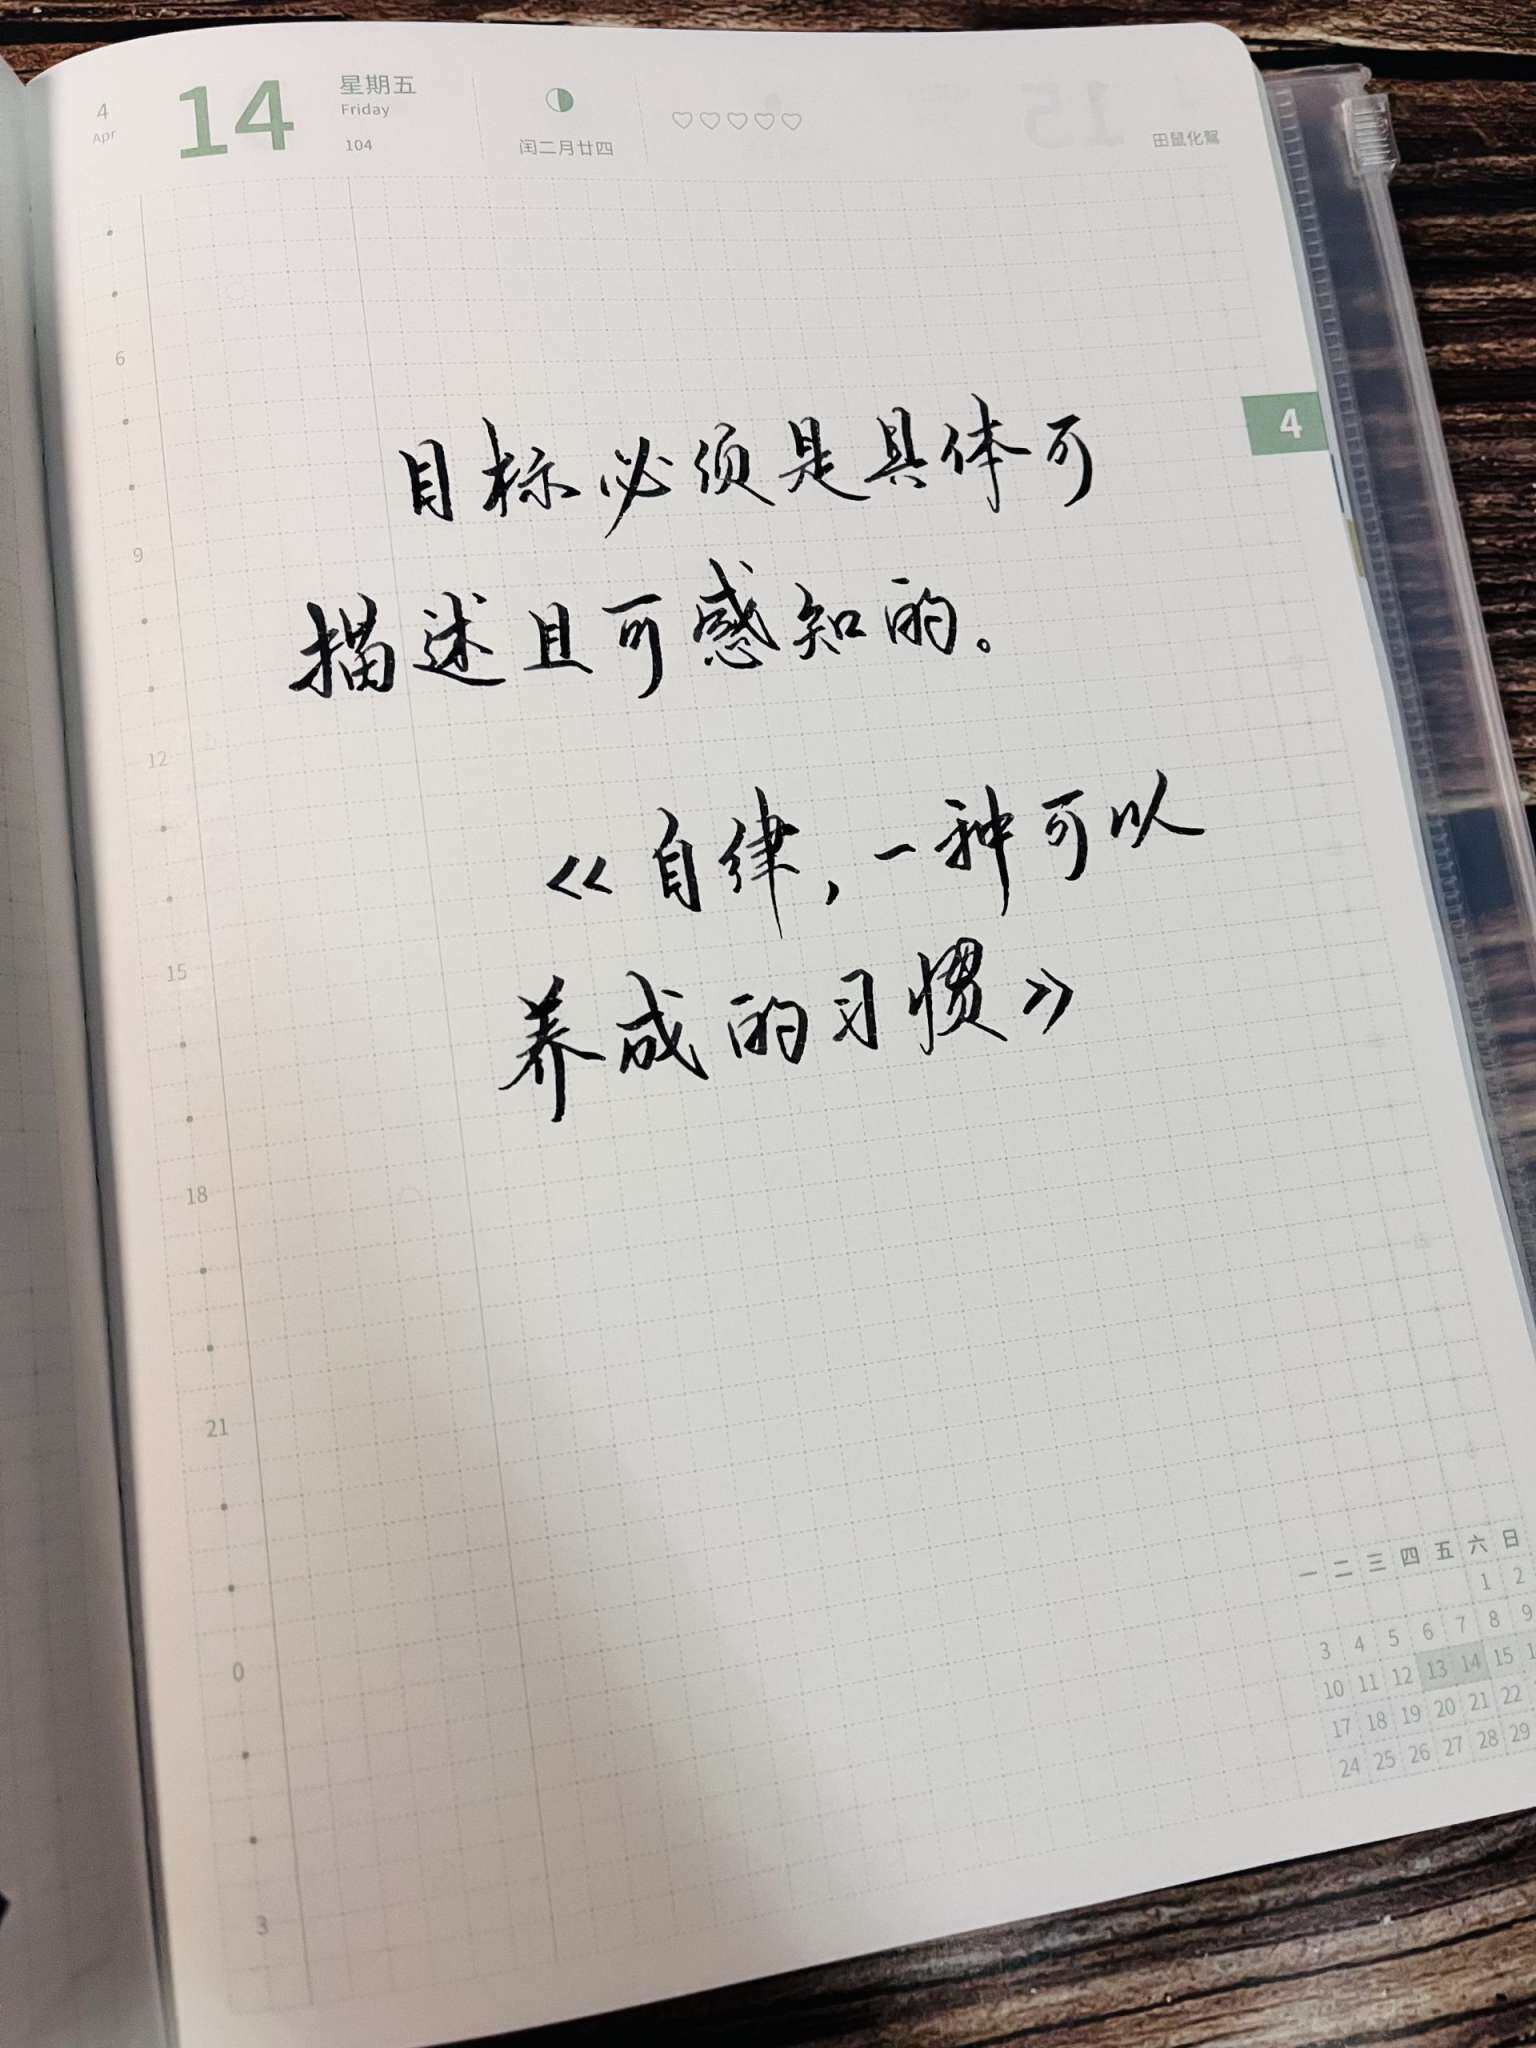 4
Apr
14
星期五
Friday
104
闰二月廿四
田鼠化鴽
4
目标必须是具体可
描述且可感知的。
《自律，一种可以
养成的习惯》
6
9
12
15
18
21
0
3
一 二 三 四 五 六 日
1 2
3 4 5 6 7 8 9
10 11 12 13 14 15
17 18 19 20 21 22
24 25 26 27 28 29